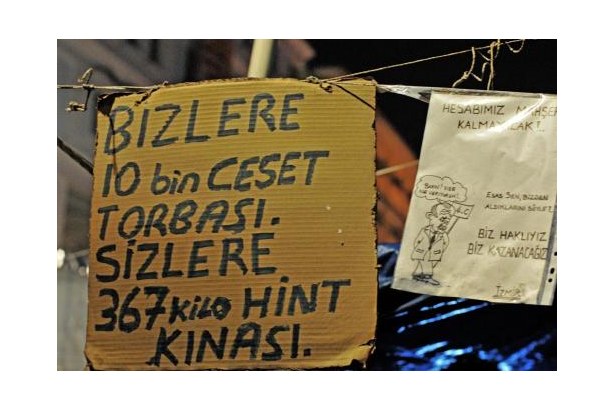 BIZLERE
10 bin CESET
TORBAŞI.
SİZLERE
367 KiLO HİNT
KINASI.
HESABIMIZ MAHŞER
KALMAYACAK!.
ESAS SEN, BİZDEN
ALDIKLARINI SÖYLE!
BİZ HAKLIYIZ
BİZ KAZANACAĞIZ
İZMİR